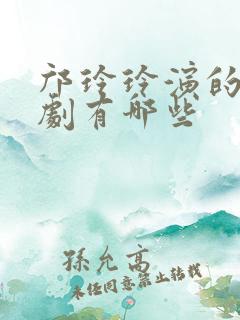 邝玲玲演的
劇有哪些
孫允高
未经同意禁止转载